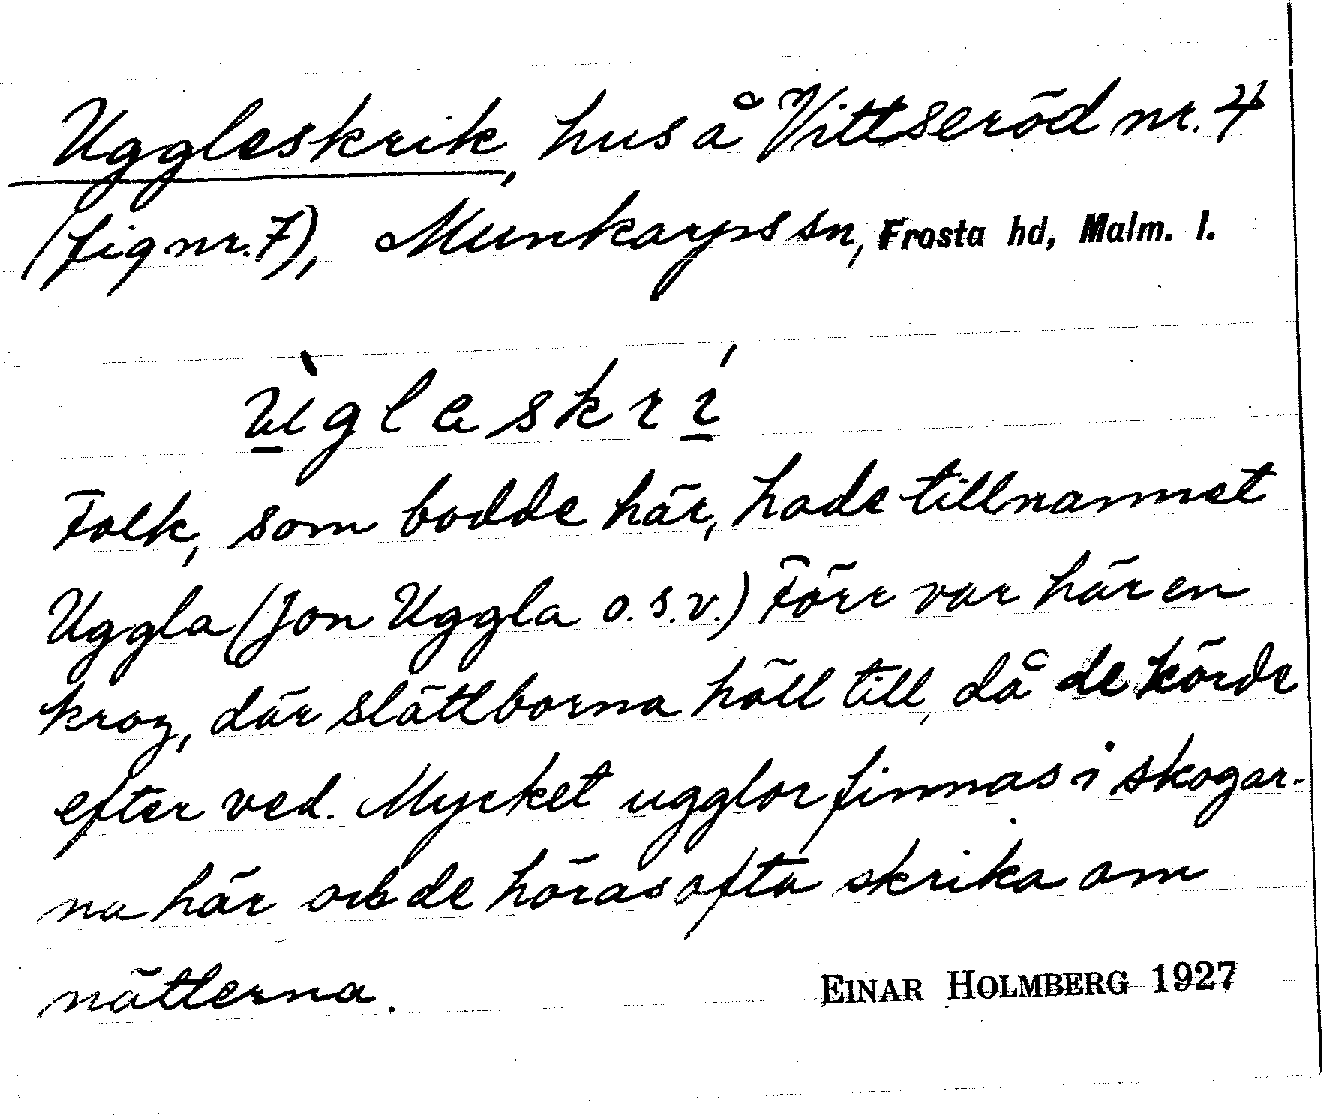 Uggleskrik, hus å Vittseröd nr. 4
(fig nr. 7), Munkarps sn, Frosta hd, Malm. l.
ùgleskrí
Folk, som bodde här, hade tillnamnet
Uggla (Jon Uggla o.s.v.) Förr var här en
krog, där slättborna höll till, då de körde
efter ved. Mycket ugglor finnas i skogar-
na här och de höras ofta skrika om
nätterna.
EINAR HOLMBERG 1927